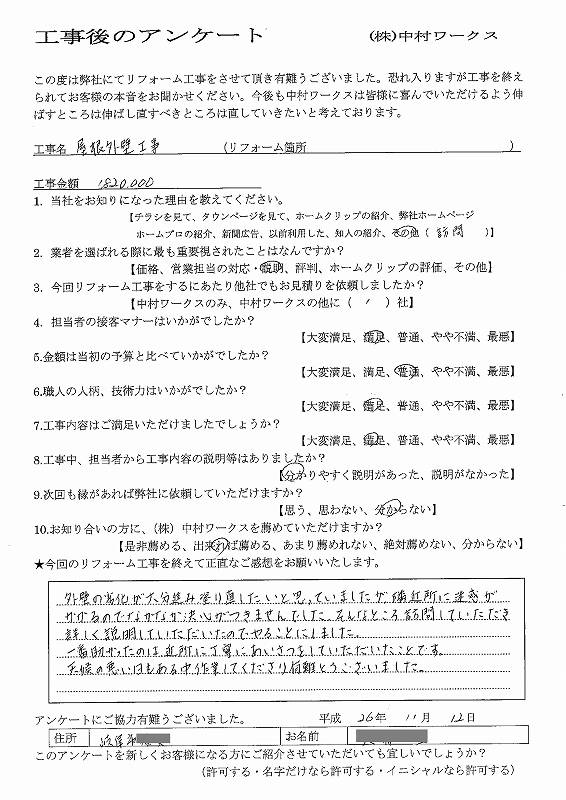 工事後のアンケート (株)中村ワークス
この度は弊社にてリフォーム工事をさせて頂き有難うございました。恐れ入りますが工事を終え
られてお客様の本音をお聞かせください。今後も中村ワークスは皆様に喜んでいただけるよう伸
ばすところは伸ばし直すべきところは直していきたいと考えております。
工事名 屋根外壁工事 (リフォーム箇所 )
工事金額 1,820,000
1. 当社をお知りになった理由を教えてください。
【チラシを見て、タウンページを見て、ホームクリップの紹介、弊社ホームページ
ホームプロの紹介、新聞広告、以前利用した、知人の紹介、その他（ 訪問 )】
2. 業者を選ばれる際に最も重要視されたことはなんですか？
【価格、営業担当の対応・説明、評判、ホームクリップの評価、その他】
3. 今回リフォーム工事をするにあたり他社でもお見積りを依頼しましたか？
【中村ワークスのみ、中村ワークスの他に（ ）社】
4. 担当者の接客マナーはいかがでしたか？
【大変満足、満足、普通、やや不満、最悪】
5.金額は当初の予算と比べていかがでしたか？
【大変満足、満足、普通、やや不満、最悪】
6.職人の人柄、技術力はいかがでしたか？
【大変満足、満足、普通、やや不満、最悪】
7.工事内容はご満足いただけましたでしょうか？
【大変満足、満足、普通、やや不満、最悪】
8.工事中、担当者から工事内容の説明等はありましたか？
【分かりやすく説明があった、説明がなかった】
9.次回も縁があれば弊社に依頼していただけますか？
【思う、思わない、分からない】
10.お知り合いの方に、（株）中村ワークスを薦めていただけますか？
【是非薦める、出来れば薦める、あまり薦めれない、絶対薦めない、分からない】
★今回のリフォーム工事を終えて正直なご感想をお願いいたします。
外壁の劣化が大分進み塗り直したいと思っていましたが隣近所に迷惑が
かかるのでなかなか決心がつきませんでした。そんなところ訪問していただき
詳しく説明していただいたのでやることにしました。
一番助かったのは近所に丁寧にあいさつをしていただいたことです。
天候の悪い日もある中作業してくださり有難とうございました。
アンケートにご協力有難うございました。 平成 26年 11月 12日
住所 お名前
このアンケートを新しくお客様になる方にご紹介させていただいても宜しいでしょうか？
（許可する・名字だけなら許可する・イニシャルなら許可する）